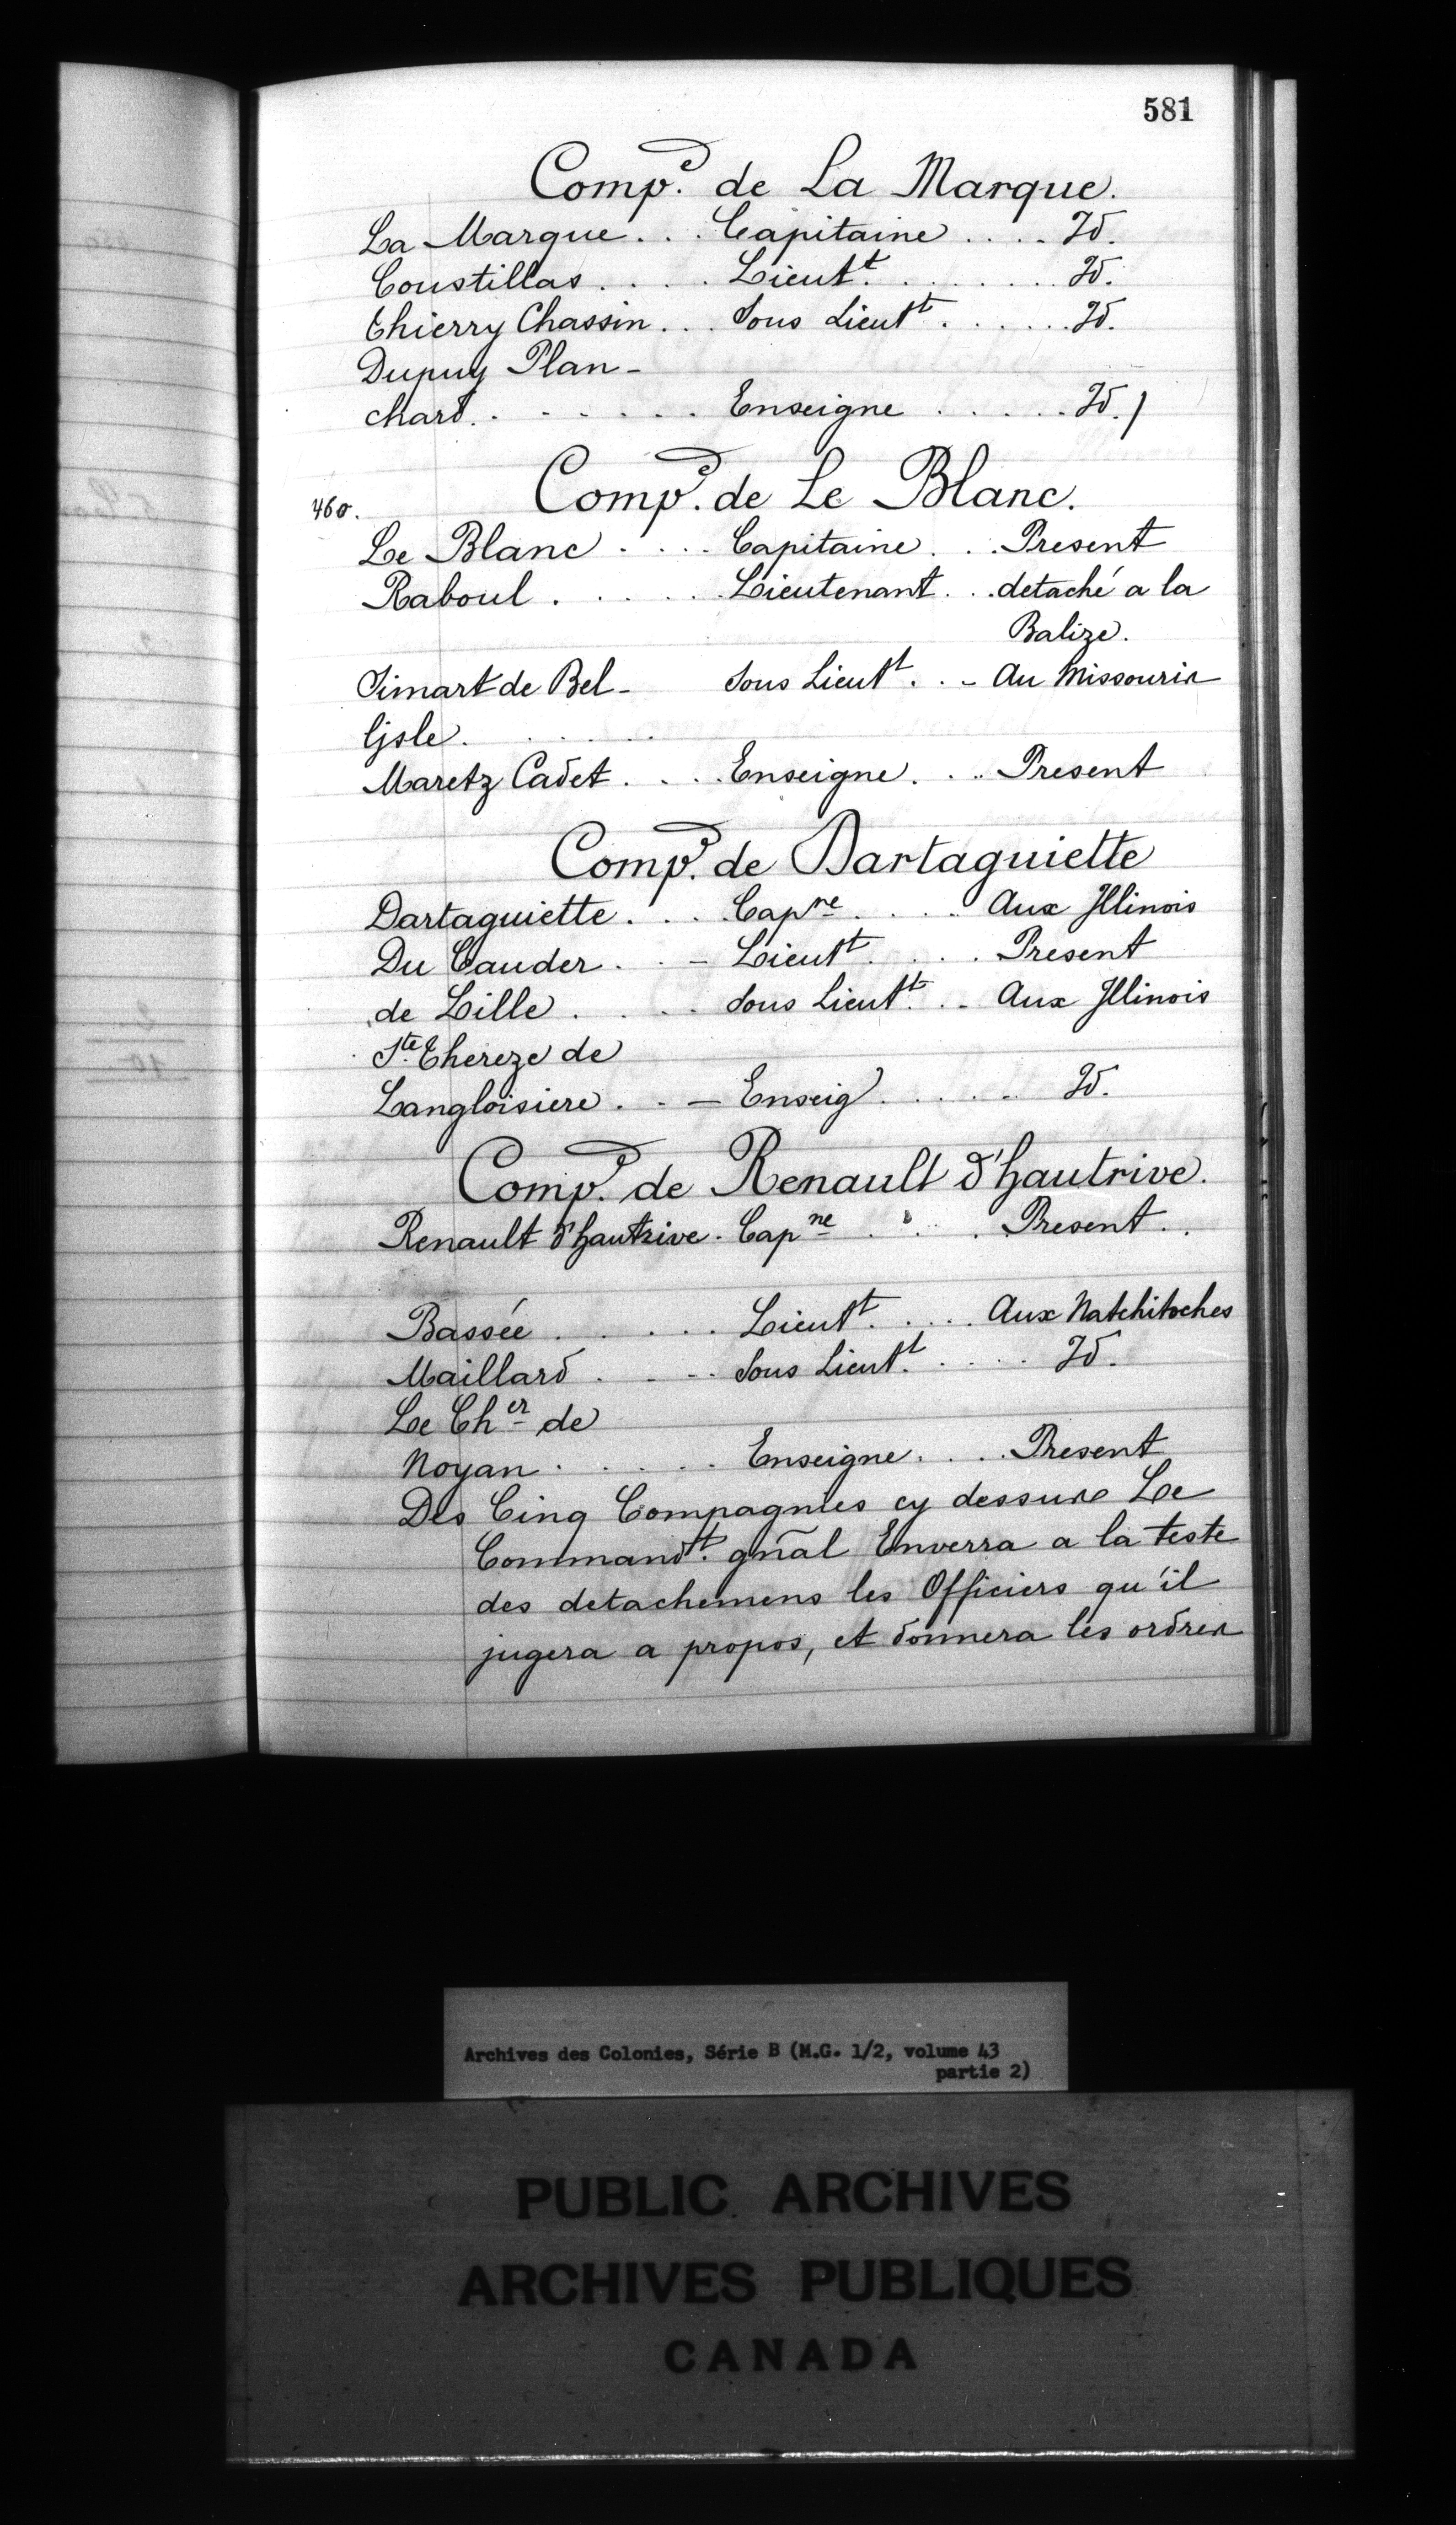 581
Comp.e de La Marque.
La Marque . . . Capitaine . . . . Id.
Coustillas . . . . Lieut.t . . . . . . . . Id.
Thierry Chassin . . . Sous Lieut.t . . . . . . Id.
Dupuy Plan-
chard . . . . . . . Enseigne . . . . . Id.
460.
Comp.e de Le Blanc.
Le Blanc . . . . Capitaine . . . Present
Raboul . . . . . . Lieutenant . . . detaché a la
Balize.
Simart de Bel- Sous Lieut.t . . - Au Missouris
lisle . . . . . .
Maretz Cadet . . . . Enseigne . . . Present
Comp.e de Dartaguiette
Dartaguiette . . . . Capne . . . . . Aux Illinois
Du Cauder . . - Lieut.t . . . . . Present
de Lille . . . . . Sous Lieut.t . . - Aux Illinois
Ste Thereze de
Langloisiere . . - Enseig . . . . . . Id.
Comp.e de Renault d'hautrive.
Renault d'hautrive . Capne . . . . Present . .
Bassée . . . . . . Lieut.t . . . . Aux Natchitoches
Maillard . . - - . . Sous Lieut.t . . . . . Id.
Le Cher de
Noyan . . . . . . Enseigne . . . . Present
Des Cinq Compagnies cy dessus Le
Commandt. gñal Enverra a la teste
des detachemens les Officiers qu'il
jugera a propos, et donnera les ordres
Archives des Colonies, Série B (M.G. 1/2, volume 43
partie 2)
PUBLIC ARCHIVES
ARCHIVES PUBLIQUES
CANADA